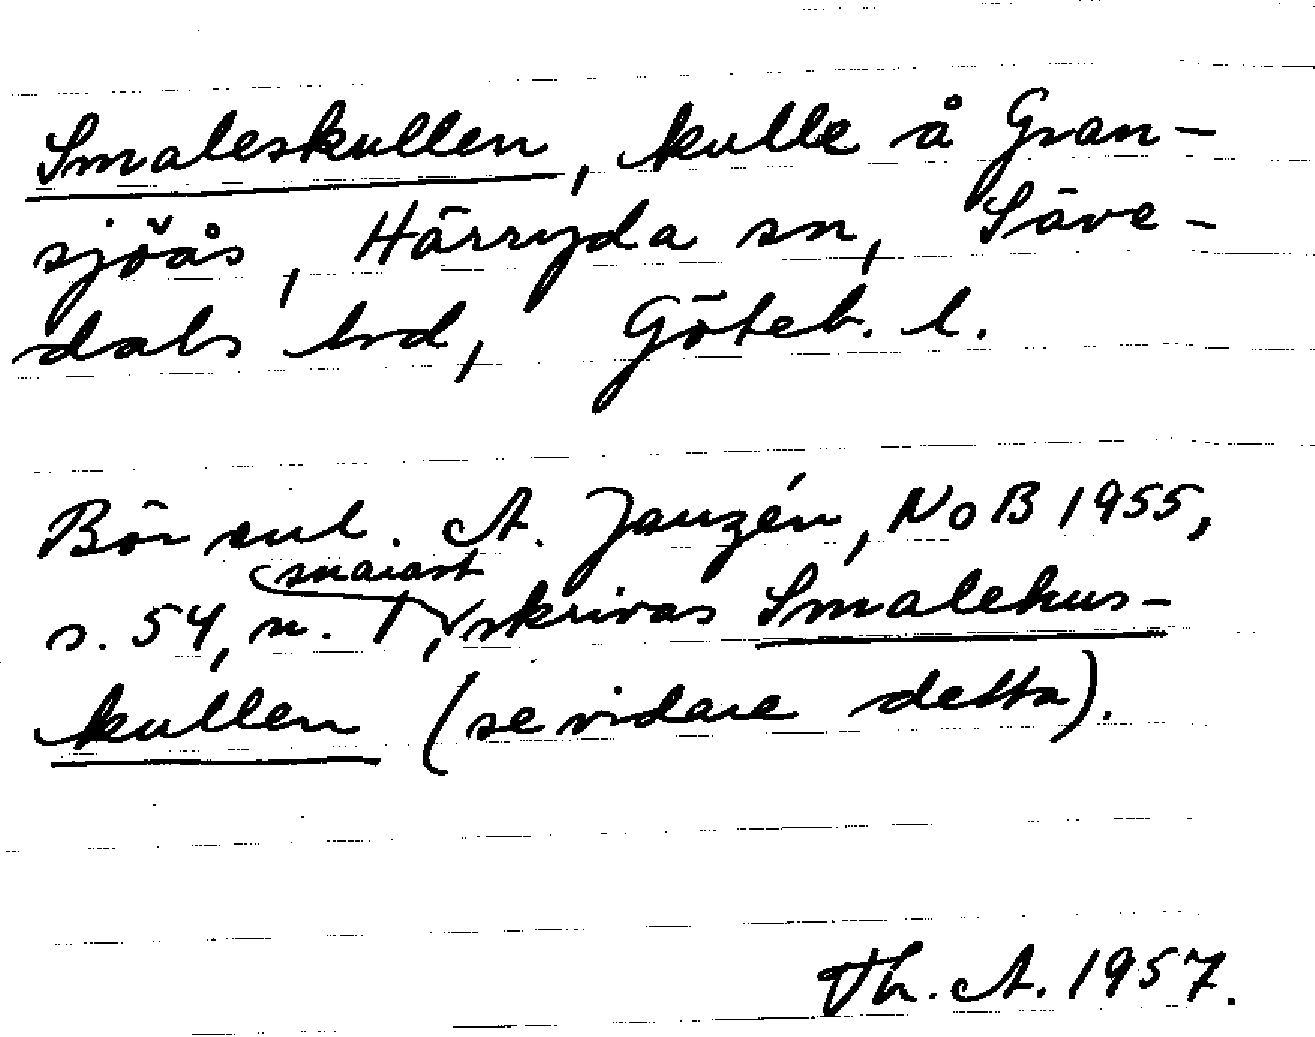 Smaleskullen, kulle å Gran-
sjöås, Härryda sn, Säve-
dals hd, Göteb. l.
Bör enl. A. Janzén, NoB 1955,
snarast
s. 54, n. 1, skrivas Smalehus-
kullen (se vidare detta).
Th. A. 1957.